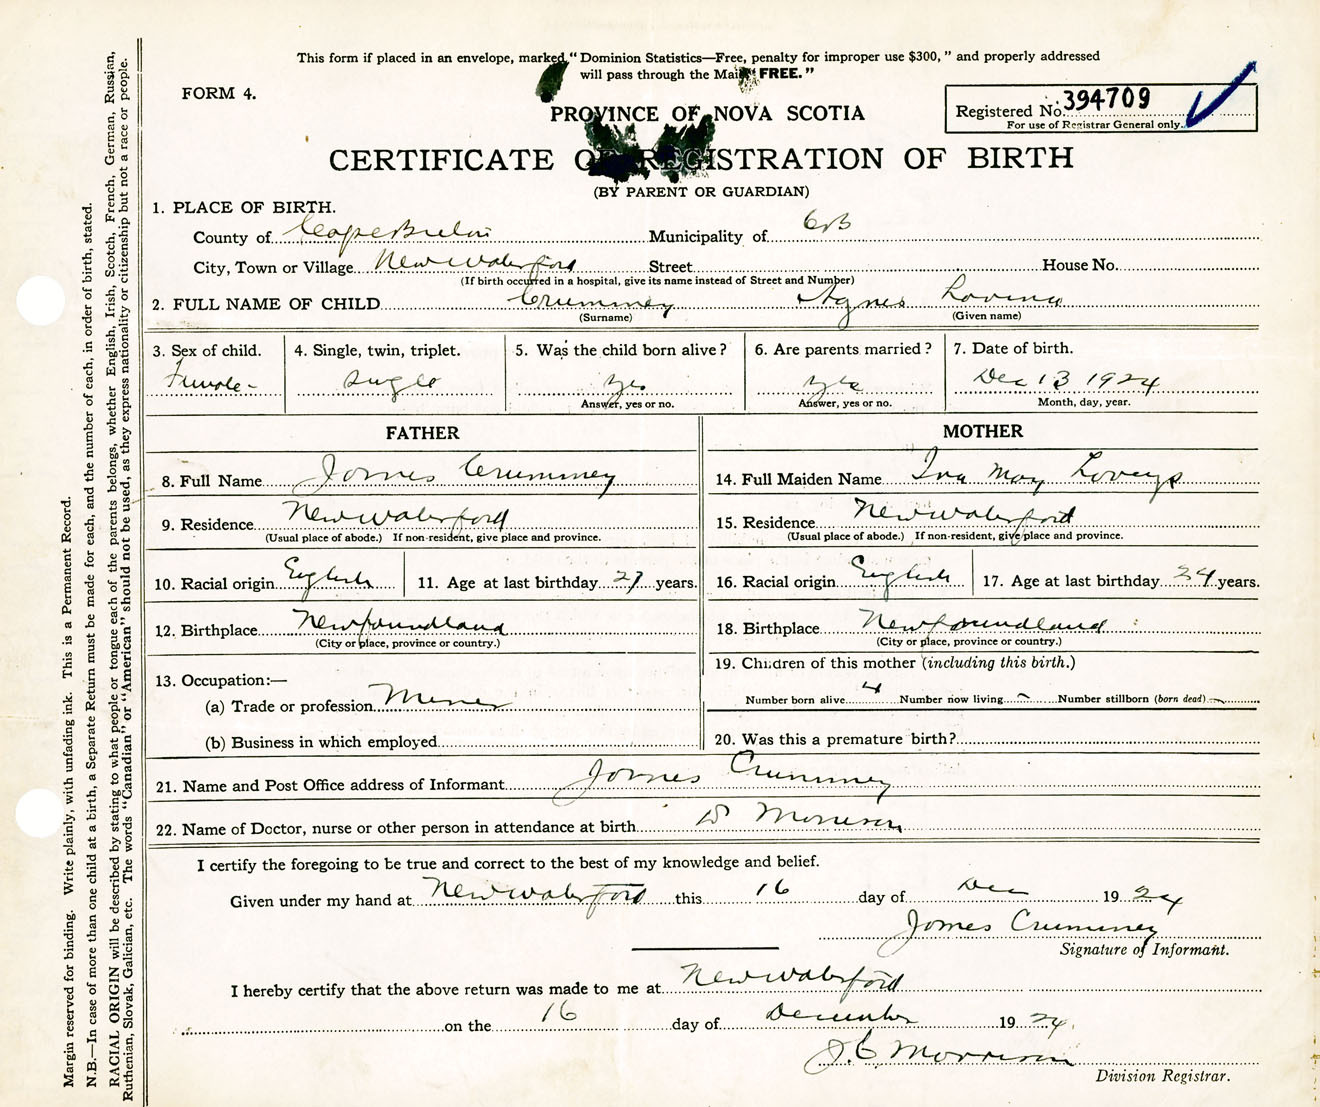 This form if placed in an envelope, marked "Dominion Statistics—Free, penalty for improper use $300," and properly addressed
will pass through the Mails FREE."
FORM 4.
Registered No. 394709
For use of Registrar General only.
PROVINCE OF NOVA SCOTIA
CERTIFICATE OF REGISTRATION OF BIRTH
(BY PARENT OR GUARDIAN)
1. PLACE OF BIRTH.
County of Cape Breton Municipality of CB
City, Town or Village New Waterford Street House No.
(If birth occurred in a hospital, give its name instead of Street and Number)
2. FULL NAME OF CHILD Crummey Agnes
(Surname) (Given name)
3. Sex of child. 4. Single, twin, triplet. 5. Was the child born alive? 6. Are parents married? 7. Date of birth.
Female - single yes yes Dec 13 1924
Answer, yes or no. Answer, yes or no. Month, day, year.
FATHER MOTHER
8. Full Name James Crummey 14. Full Maiden Name Iva May Loveys
9. Residence New Waterford 15. Residence New Waterford
(Usual place of abode.) If non-resident, give place and province. (Usual place of abode.) If non-resident, give place and province.
10. Racial origin English 11. Age at last birthday 27 years. 16. Racial origin English 17. Age at last birthday 24 years.
12. Birthplace Newfoundland 18. Birthplace Newfoundland
(City or place, province or country.) (City or place, province or country.)
19. Children of this mother (including this birth.)
13. Occupation:—
Number born alive 4 Number now living Number stillborn (born dead)
(a) Trade or profession Miner
(b) Business in which employed
20. Was this a premature birth?
21. Name and Post Office address of Informant James Crummey
22. Name of Doctor, nurse or other person in attendance at birth Dr Morrison
I certify the foregoing to be true and correct to the best of my knowledge and belief.
Given under my hand at New Waterford this 16 day of Dec 1924
James Crummey
Signature of Informant.
I hereby certify that the above return was made to me at New Waterford
on the 16 day of December 1924.
J.C Morrison
Division Registrar.
Margin reserved for binding. Write plainly, with unfading ink. This is a Permanent Record.
N.B.—In case of more than one child at a birth, a Separate Return must be made for each, and the number of each, in order of birth, stated.
RACIAL ORIGIN will be described by stating to what people or tongue each of the parents belongs, whether English, Irish, Scotch, French, German, Russian,
Ruthenian, Slovak, Galician, etc. The words "Canadian" or "American" should not be used, as they express nationality or citizenship but not a race or people.